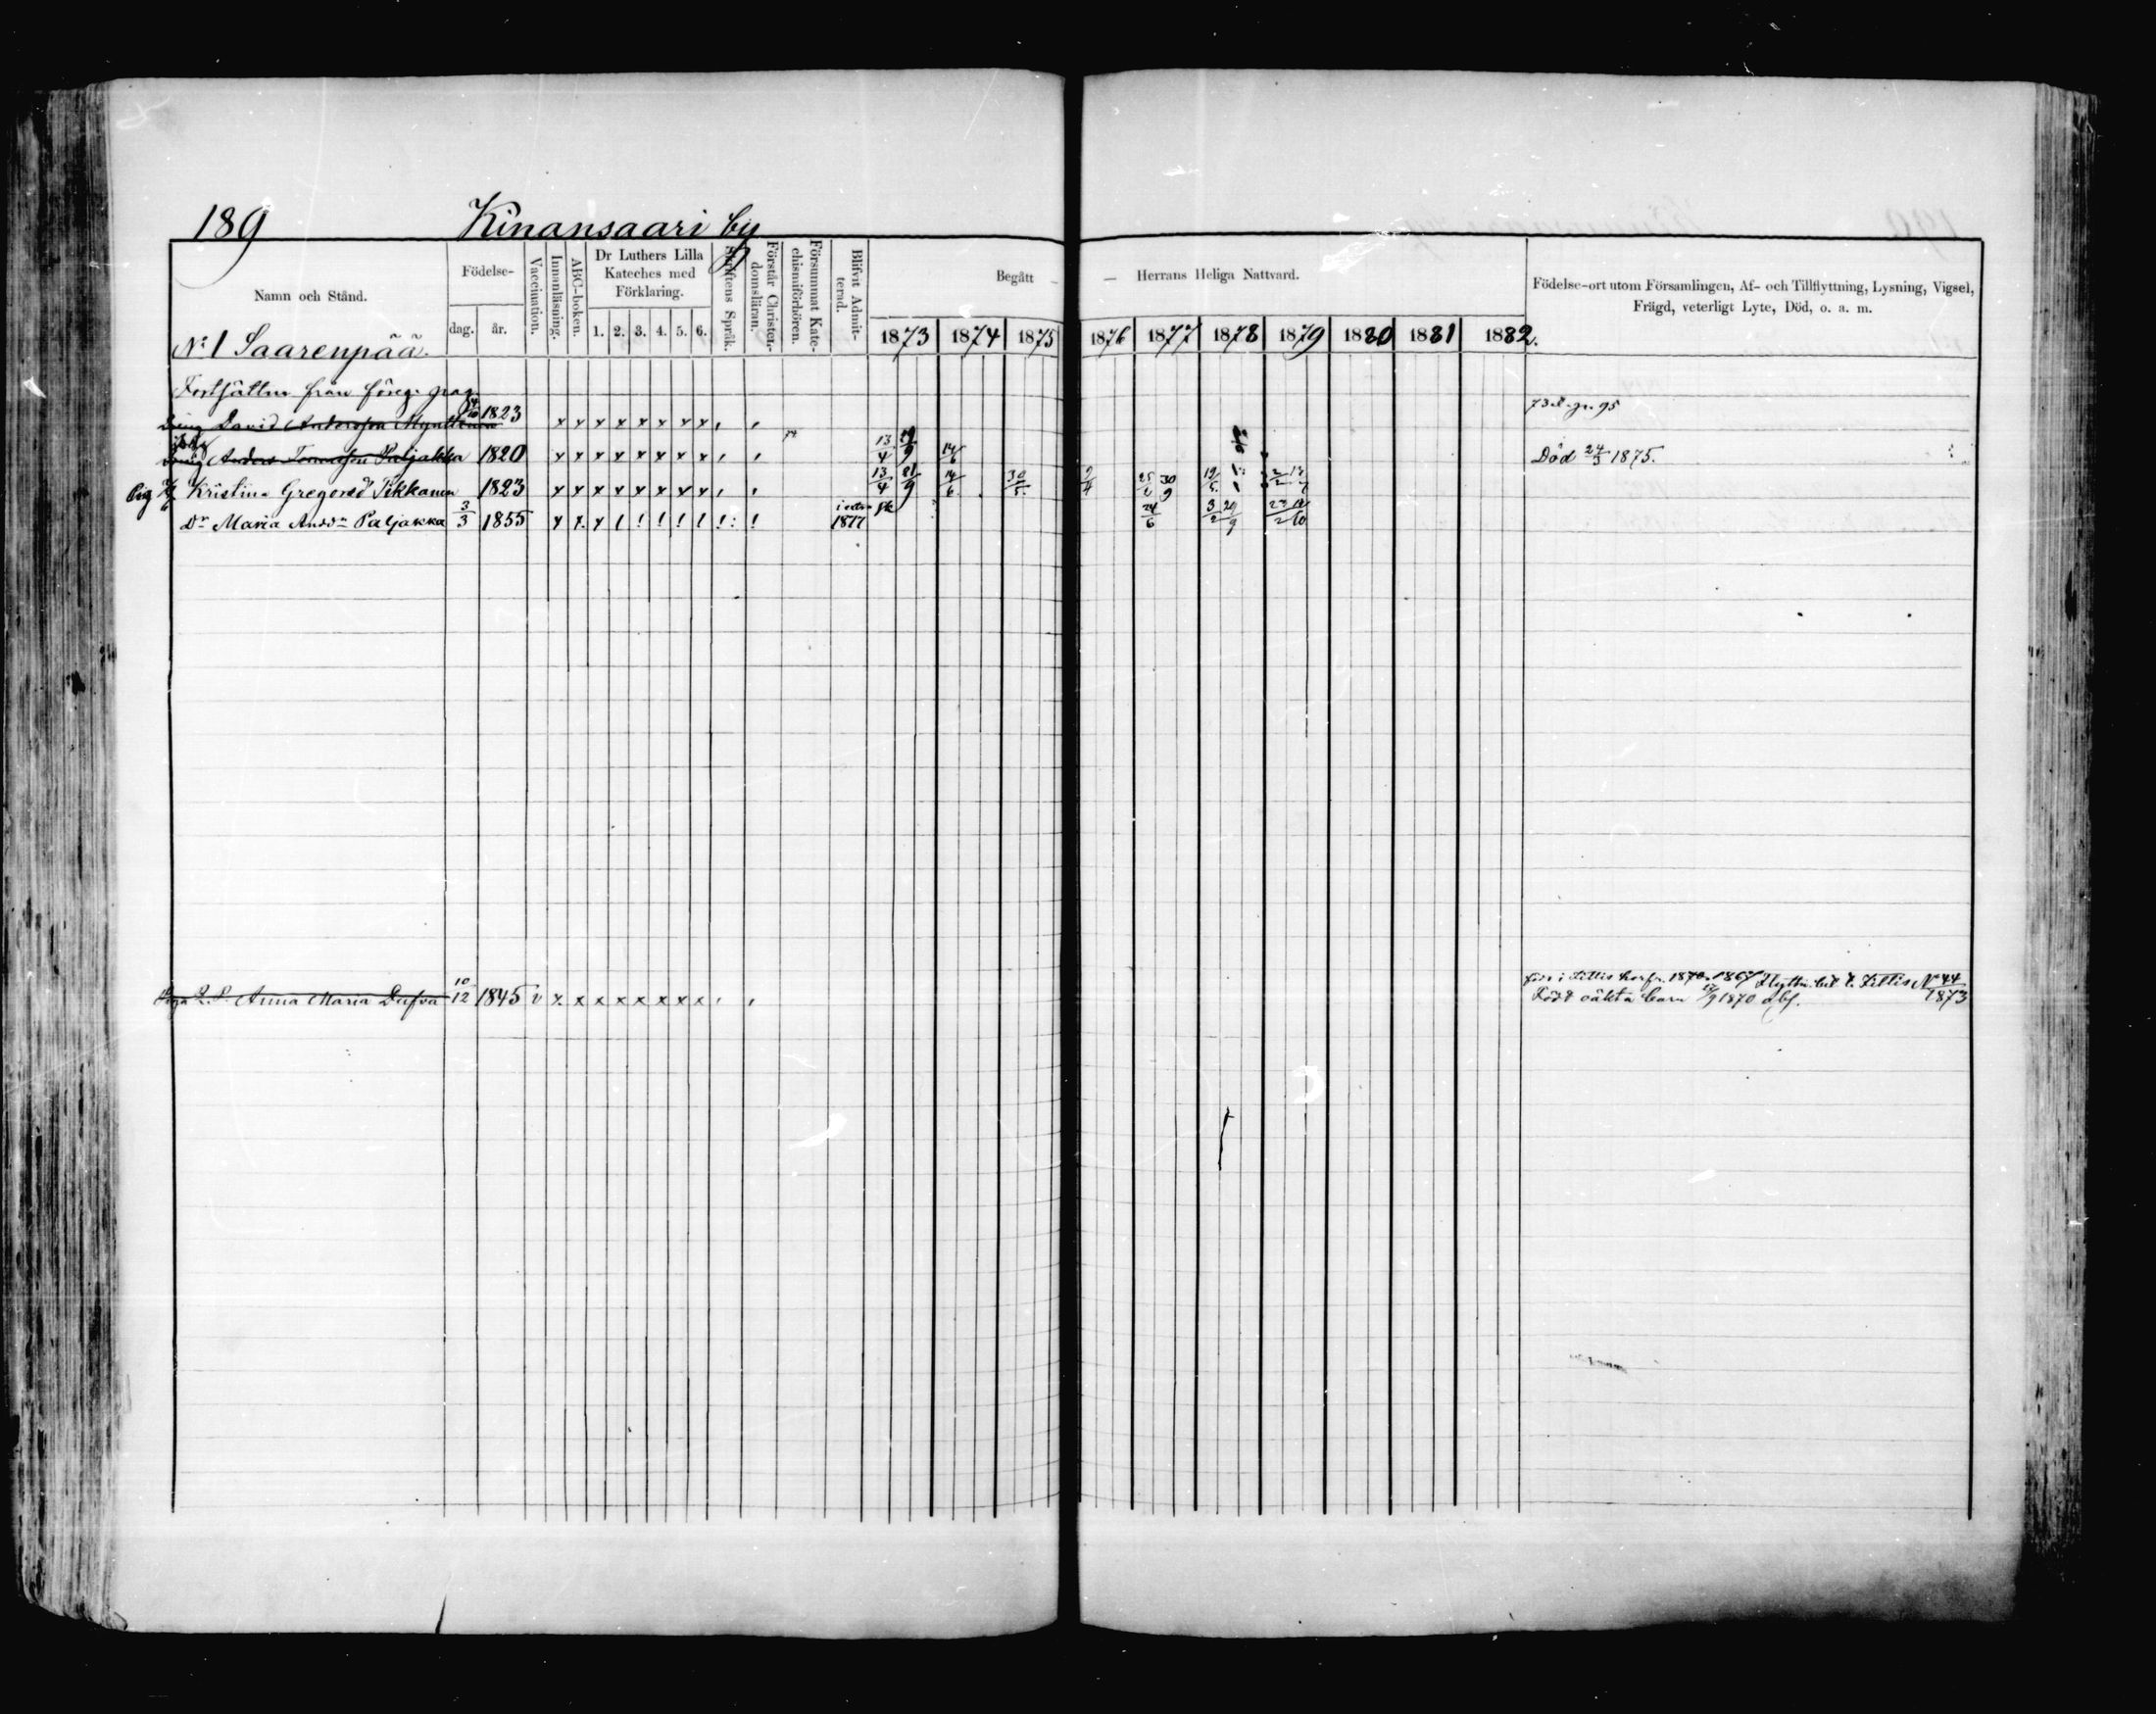 189 Kinansaari by
Namn och Stånd.
Födelse-
dag. år.
Vaccination.
Innanläsning.
ABC-boken.
Dr Luthers Lilla
Kateches med
Förklaring.
1. 2. 3. 4. 5. 6.
Skriftens Språk.
Förstår Christen-
domsläran.
Försummat Kate-
chismiförhören.
Blifvit Admit-
terad.
Begått — Herrans Heliga Nattvard.
1873 1874 1875 1876 1877 1878 1879 1880 1881 1882.
Födelse-ort utom Församlingen, Af- och Tillflyttning, Lysning, Vigsel,
Frägd, veterligt Lyte, Död, o. a. m.
No 1 Saarenpää.
Fortsättn från föreg. pag.
David Andersson 1823 x x x x x x x x , , 95
Anders Tomasson Paljakka 1820 x x x x x x x x , , 13/4 14/6 Död 24/3 1875.
Kristina Gregersd Pekkanen 1823 x x x x x x x x , , 13/4 21/9 14/6 30/5 2/4 30/9
Dr Maria Andds Paljakka 3/3 1855 1877 24/6 3/2
L. S. Anna Maria Dufva 10/12 1845 v x x x x x x x x , , Flyttn. bet. t. Littis No 44
Född oäkta barn 1870 1873